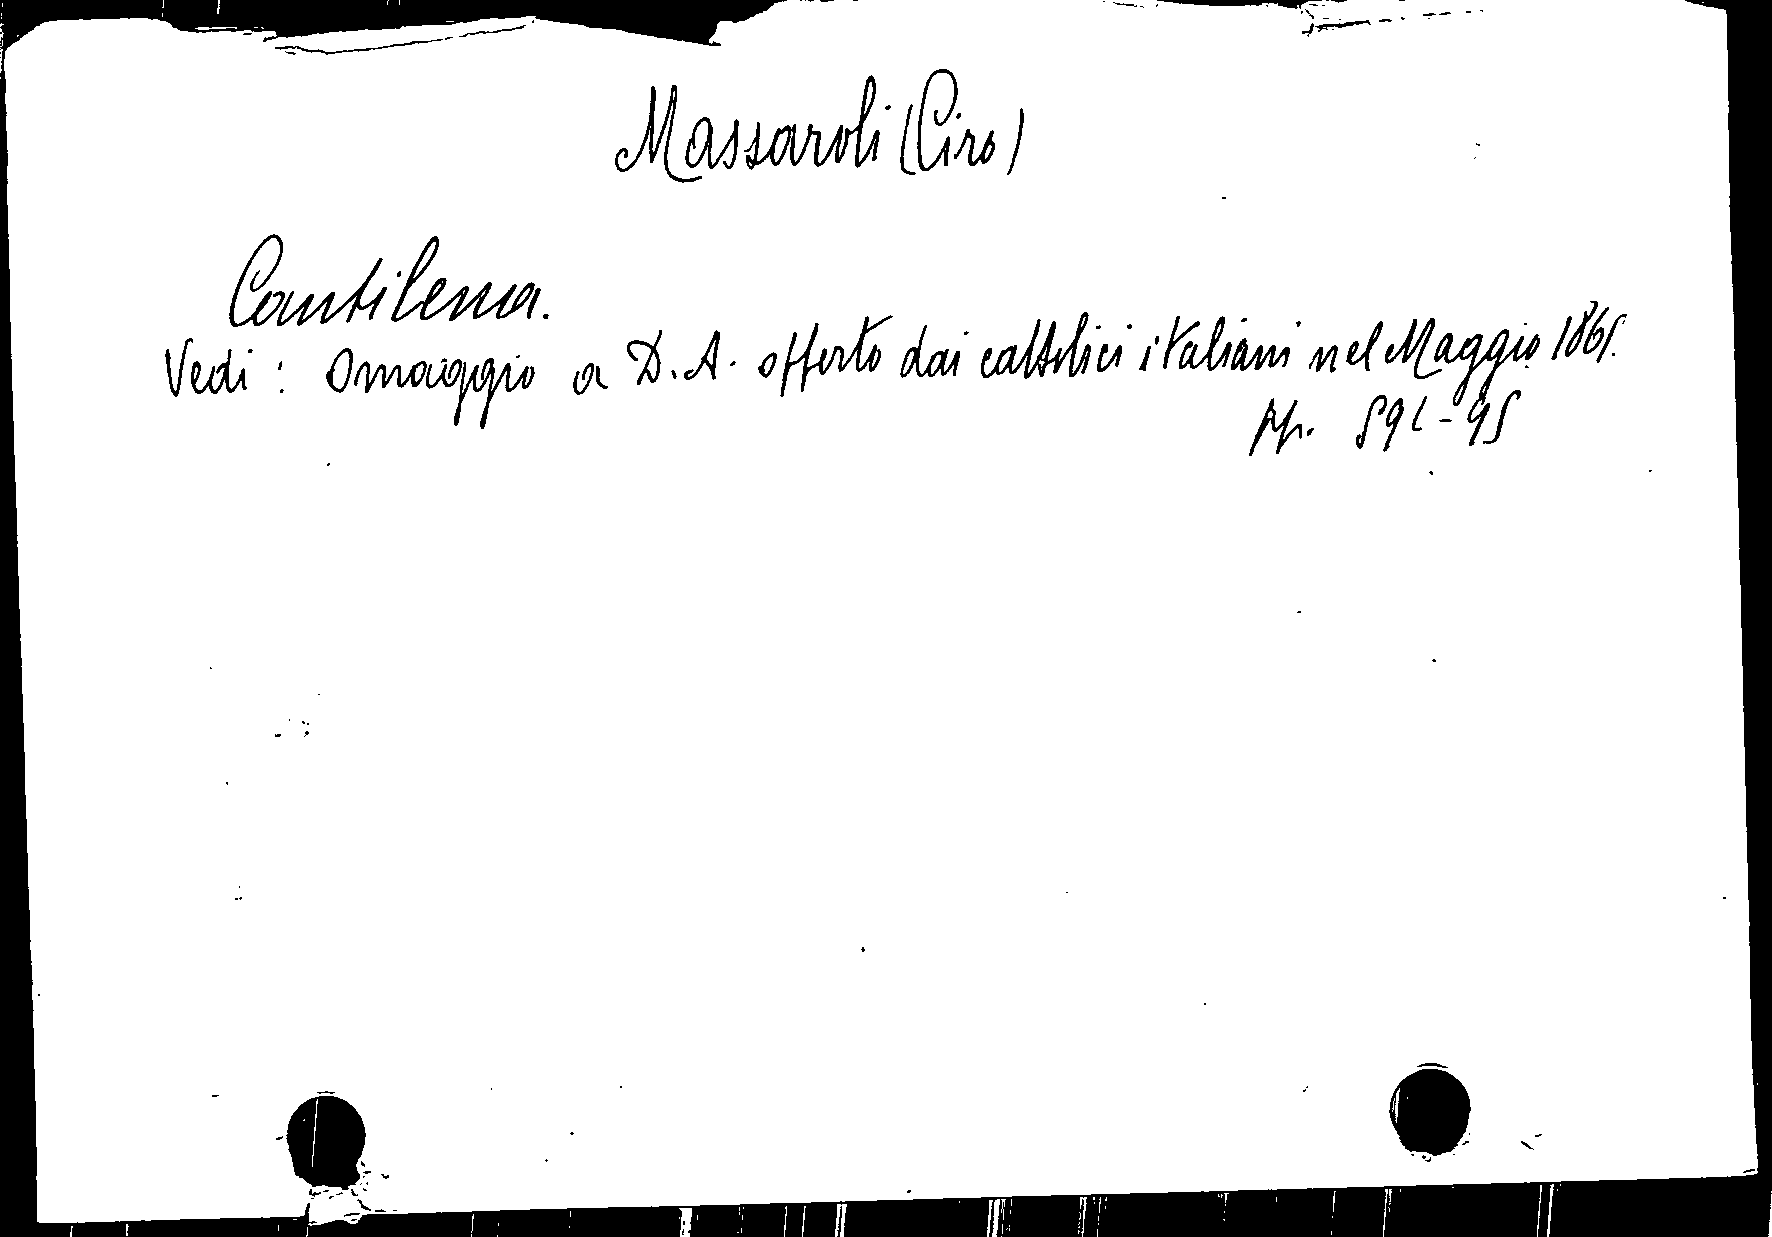 Massaroli (Ciro)
Cantilena.
Vedi: Omaggio a D. A. offerto dai cattolici italiani nel Maggio 1865.
pp. 591-95